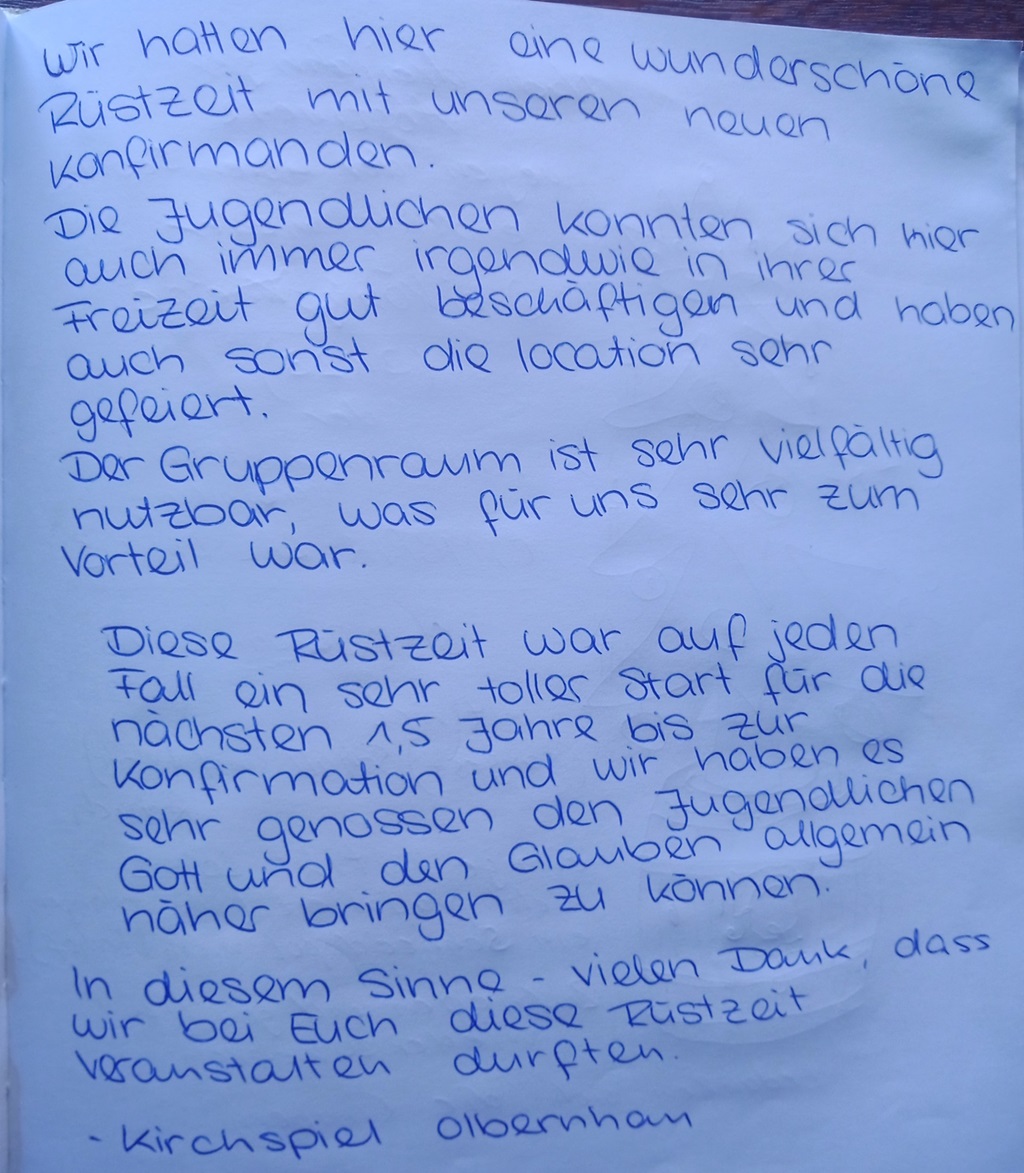 Wir hatten hier eine wunderschöne
Rüstzeit mit unseren neuen
Konfirmanden.
Die Jugendlichen konnten sich hier
auch immer irgendwie in ihrer
Freizeit gut beschäftigen und haben
auch sonst die location sehr
gefeiert.
Der Gruppenraum ist sehr vielfältig
nutzbar, was für uns sehr zum
Vorteil war.
Diese Rüstzeit war auf jeden
Fall ein sehr toller Start für die
nächsten 1,5 Jahre bis zur
Konfirmation und wir haben es
sehr genossen den Jugendlichen
Gott und den Glauben allgemein
näher bringen zu können.
In diesem Sinne - vielen Dank, dass
wir bei Euch diese Rüstzeit
veranstalten durften.
- Kirchspiel Olbernhau